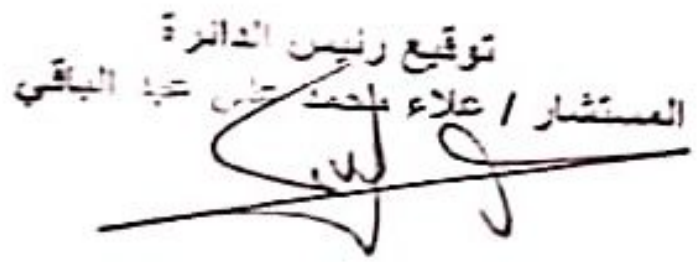 توقيع رئيس الدائرة
المستشار / علاء محمد على عبد الباقي